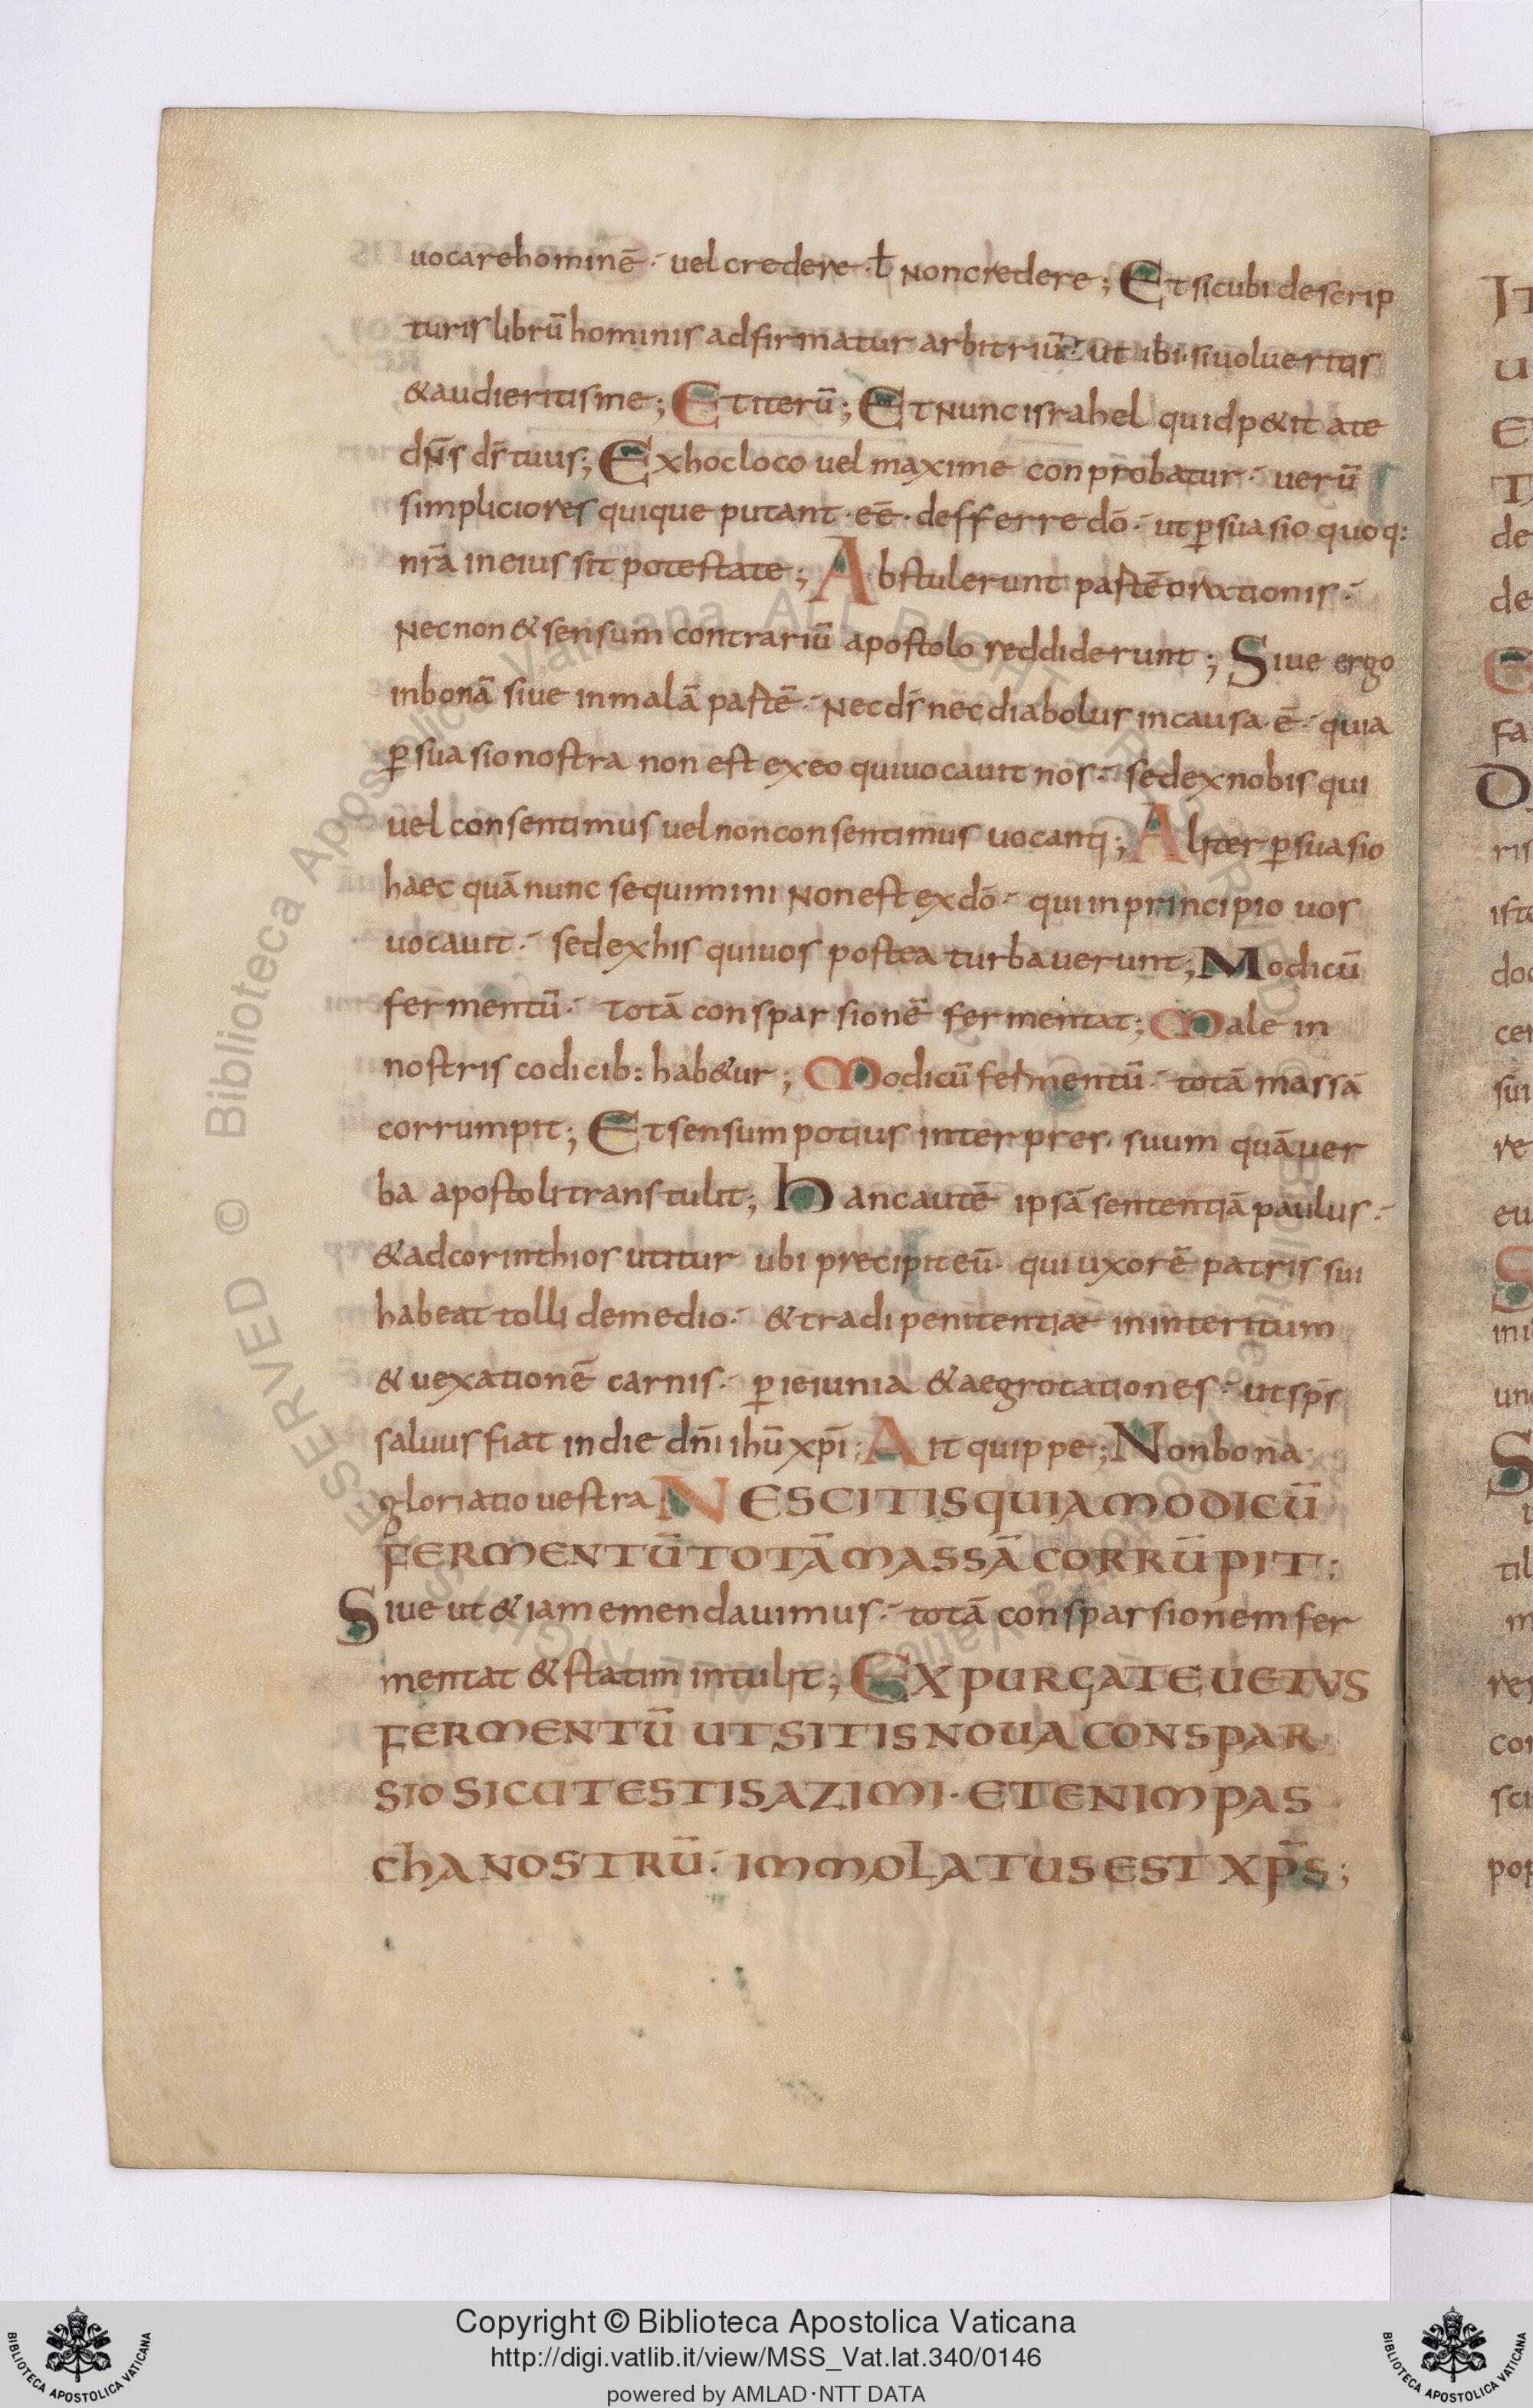 uocare hominē · uel credere · ł non credere ; Et sicubi de scrip
turis librū hominis adfirmatur arbitriū · ut ibi · si uolueritis
& audieritis me ; Et iterū ; Et nunc israhel quid p&it a te
dn̄s ds̄ tuus ; Ex hoc loco uel maxime conprobatur · uerū
simpliciores quique putant · eē · defferre dō · ut ꝑsuasio quoq:
nr̄a in eius sit potestate ; Abstulerunt partē orationis ·
Nec non & sensum contrariū apostolo reddiderunt ; Siue ergo
in bonā siue in malā partē · Nec ds̄ nec diabolus in causa · ē · quia
ꝑsuasio nostra non est ex eo qui uocauit nos · sed ex nobis qui
uel consentimus uel non consentimus uocanti ; Aliter ꝑsuasio
haec quā nunc sequimini Non est ex dō · qui in principio uos
uocauit · sed ex his qui uos postea turbauerunt ; Modicū
fermentū · totā consparsionē fermentat ; Male in
nostris codicib: hab&ur ; Modicū fermentū · totā massā
corrumpit ; Et sensum potius interpres · suum quā uer
ba apostoli transtulit ; hanc autē ipsā sententiā paulus ·
& ad corinthios utitur ubi precipit eū · qui uxorē patris sui
habeat tolli de medio · & tradi penitentiæ in interitum
& uexationē carnis · ꝑ ieiunia & aegrotationes · ut sps̄
saluus fiat in die dn̄i ihū xp̄i ; Ait quippe ; Non bona
gloriatio uestra NESCITIS QUIA MODICŪ
FERMENTŪ TOTĀ MASSĀ CORRŪPIT ;
Siue ut & iam emendauimus · totā consparsionem fer
mentat & statim intulit ; EXPURGATE UETVS
FERMENTŪ UT SITIS NOUA CONSPAR
SIO SICUT ESTIS AZIMI · ETENIM PAS
CHA NOSTRŪ · IMMOLATUS EST XP̄S ;
Copyright © Biblioteca Apostolica Vaticana
http://digi.vatlib.it/view/MSS_Vat.lat.340/0146
powered by AMLAD·NTT DATA